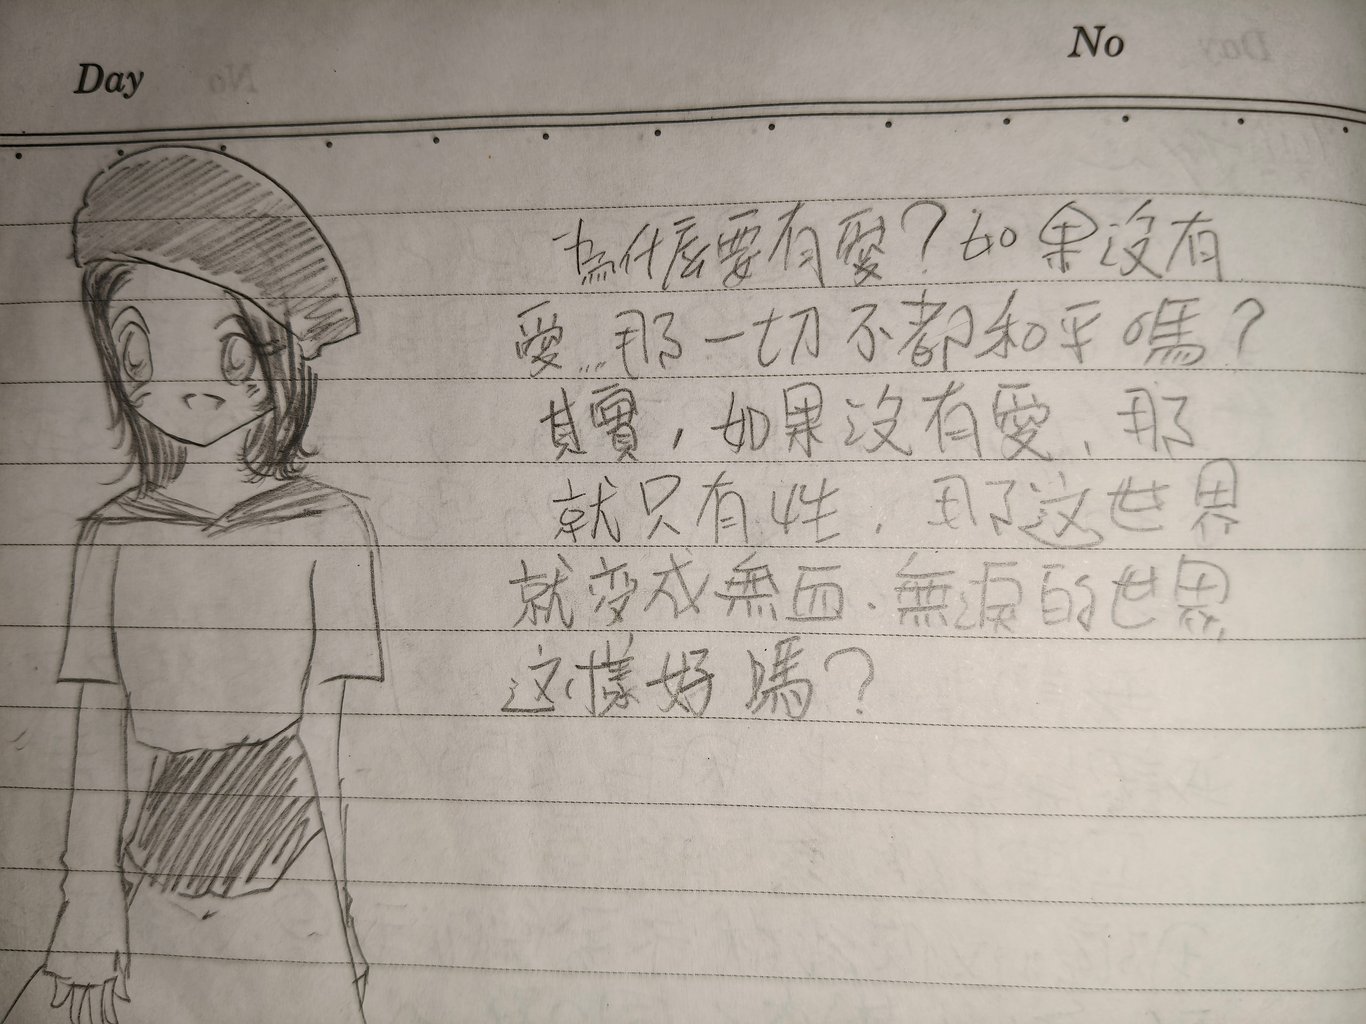 Day No
為什麼要有愛?如果沒有
愛...那一切不都和平嗎?
其實,如果沒有愛,那
就只有性,那这世界
就変成無血、無淚的世界
这樣好嗎?